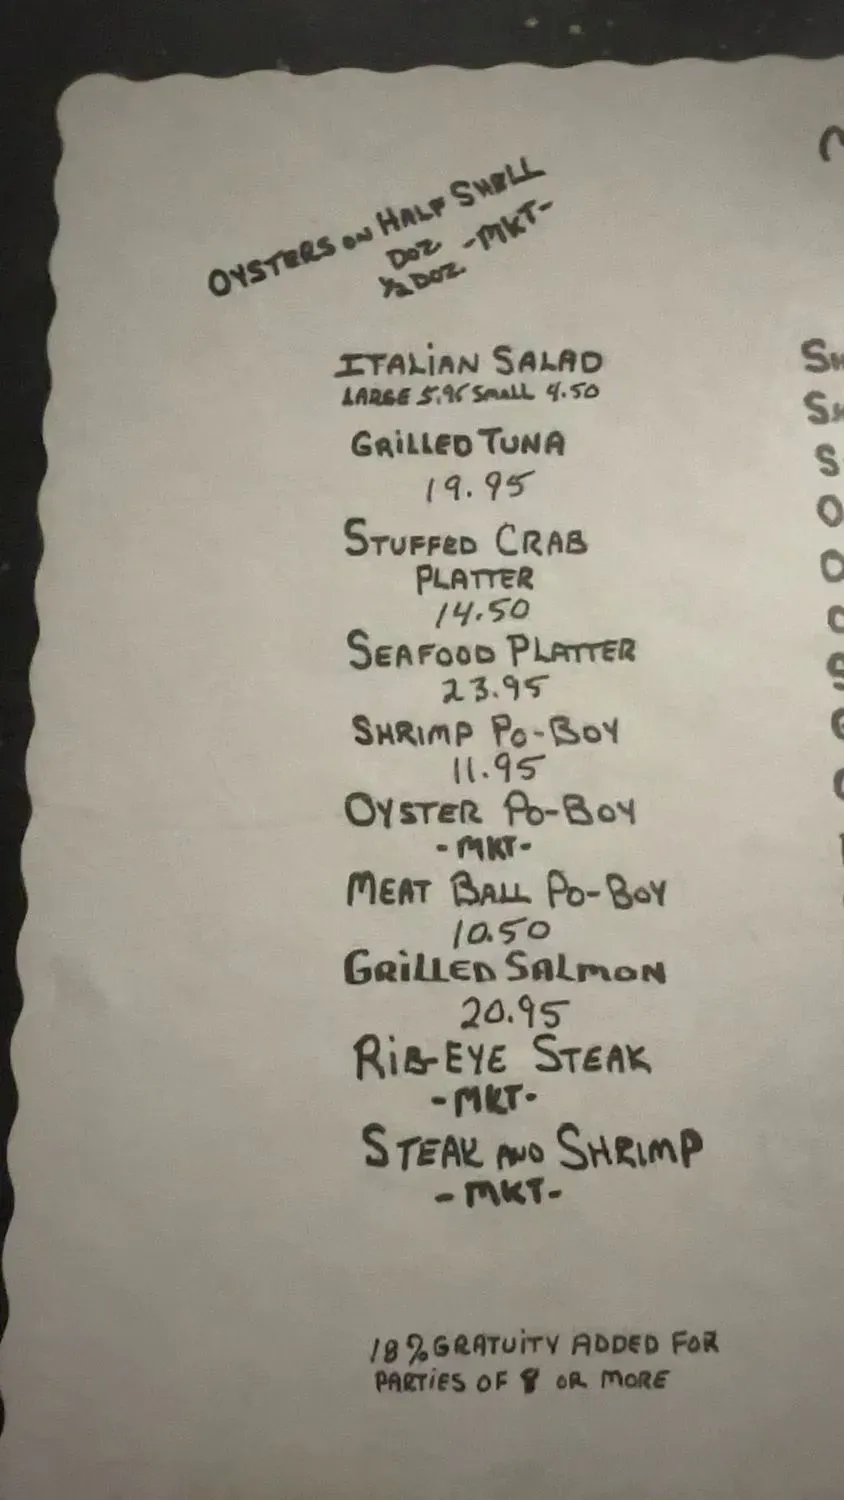 OYSTERS ON HALF SHELL
DOZ -MKT-
½ DOZ
ITALIAN SALAD
LARGE 5.95 SMALL 4.50
GRILLED TUNA
19.95
STUFFED CRAB
PLATTER
14.50
SEAFOOD PLATTER
23.95
SHRIMP PO-BOY
11.95
OYSTER PO-BOY
-MKT-
MEAT BALL PO-BOY
10.50
GRILLED SALMON
20.95
RIB-EYE STEAK
-MKT-
STEAK AND SHRIMP
-MKT-
18% GRATUITY ADDED FOR
PARTIES OF 8 OR MORE